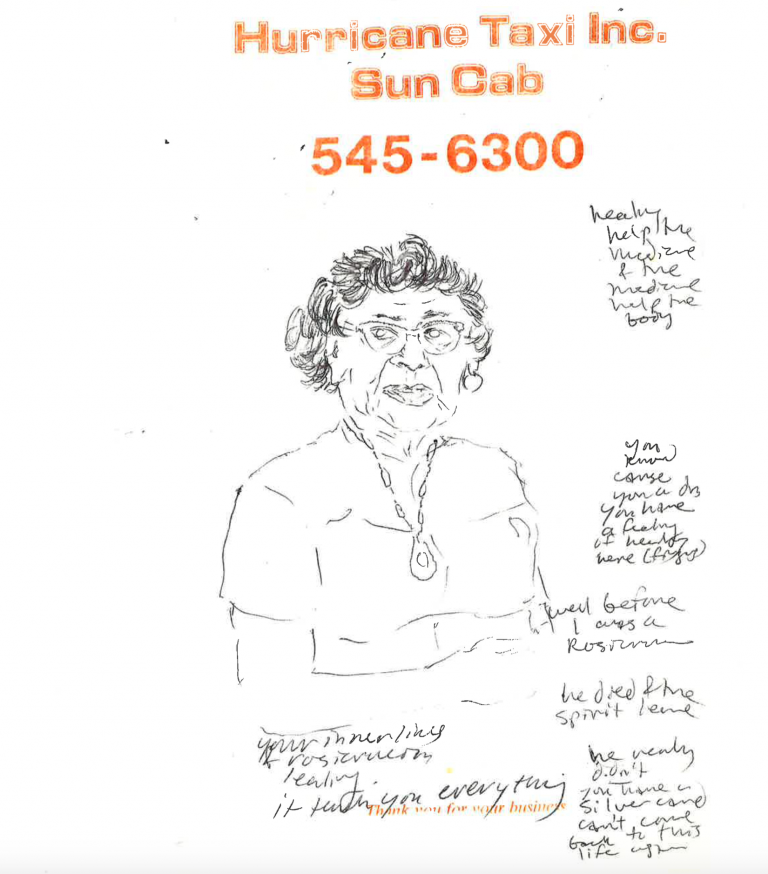 Hurricane Taxi Inc.
Sun Cab
545-6300
help the
medicine
& the
medicine
help the
body
you
know
cause
you a
you have
a
of
here
well before
I was a
he died & the
spirit leave
he really
didn't
you have a
silver cord
can't come
back to this
life again
your inner
&
it teach you everything
Thank you for your business